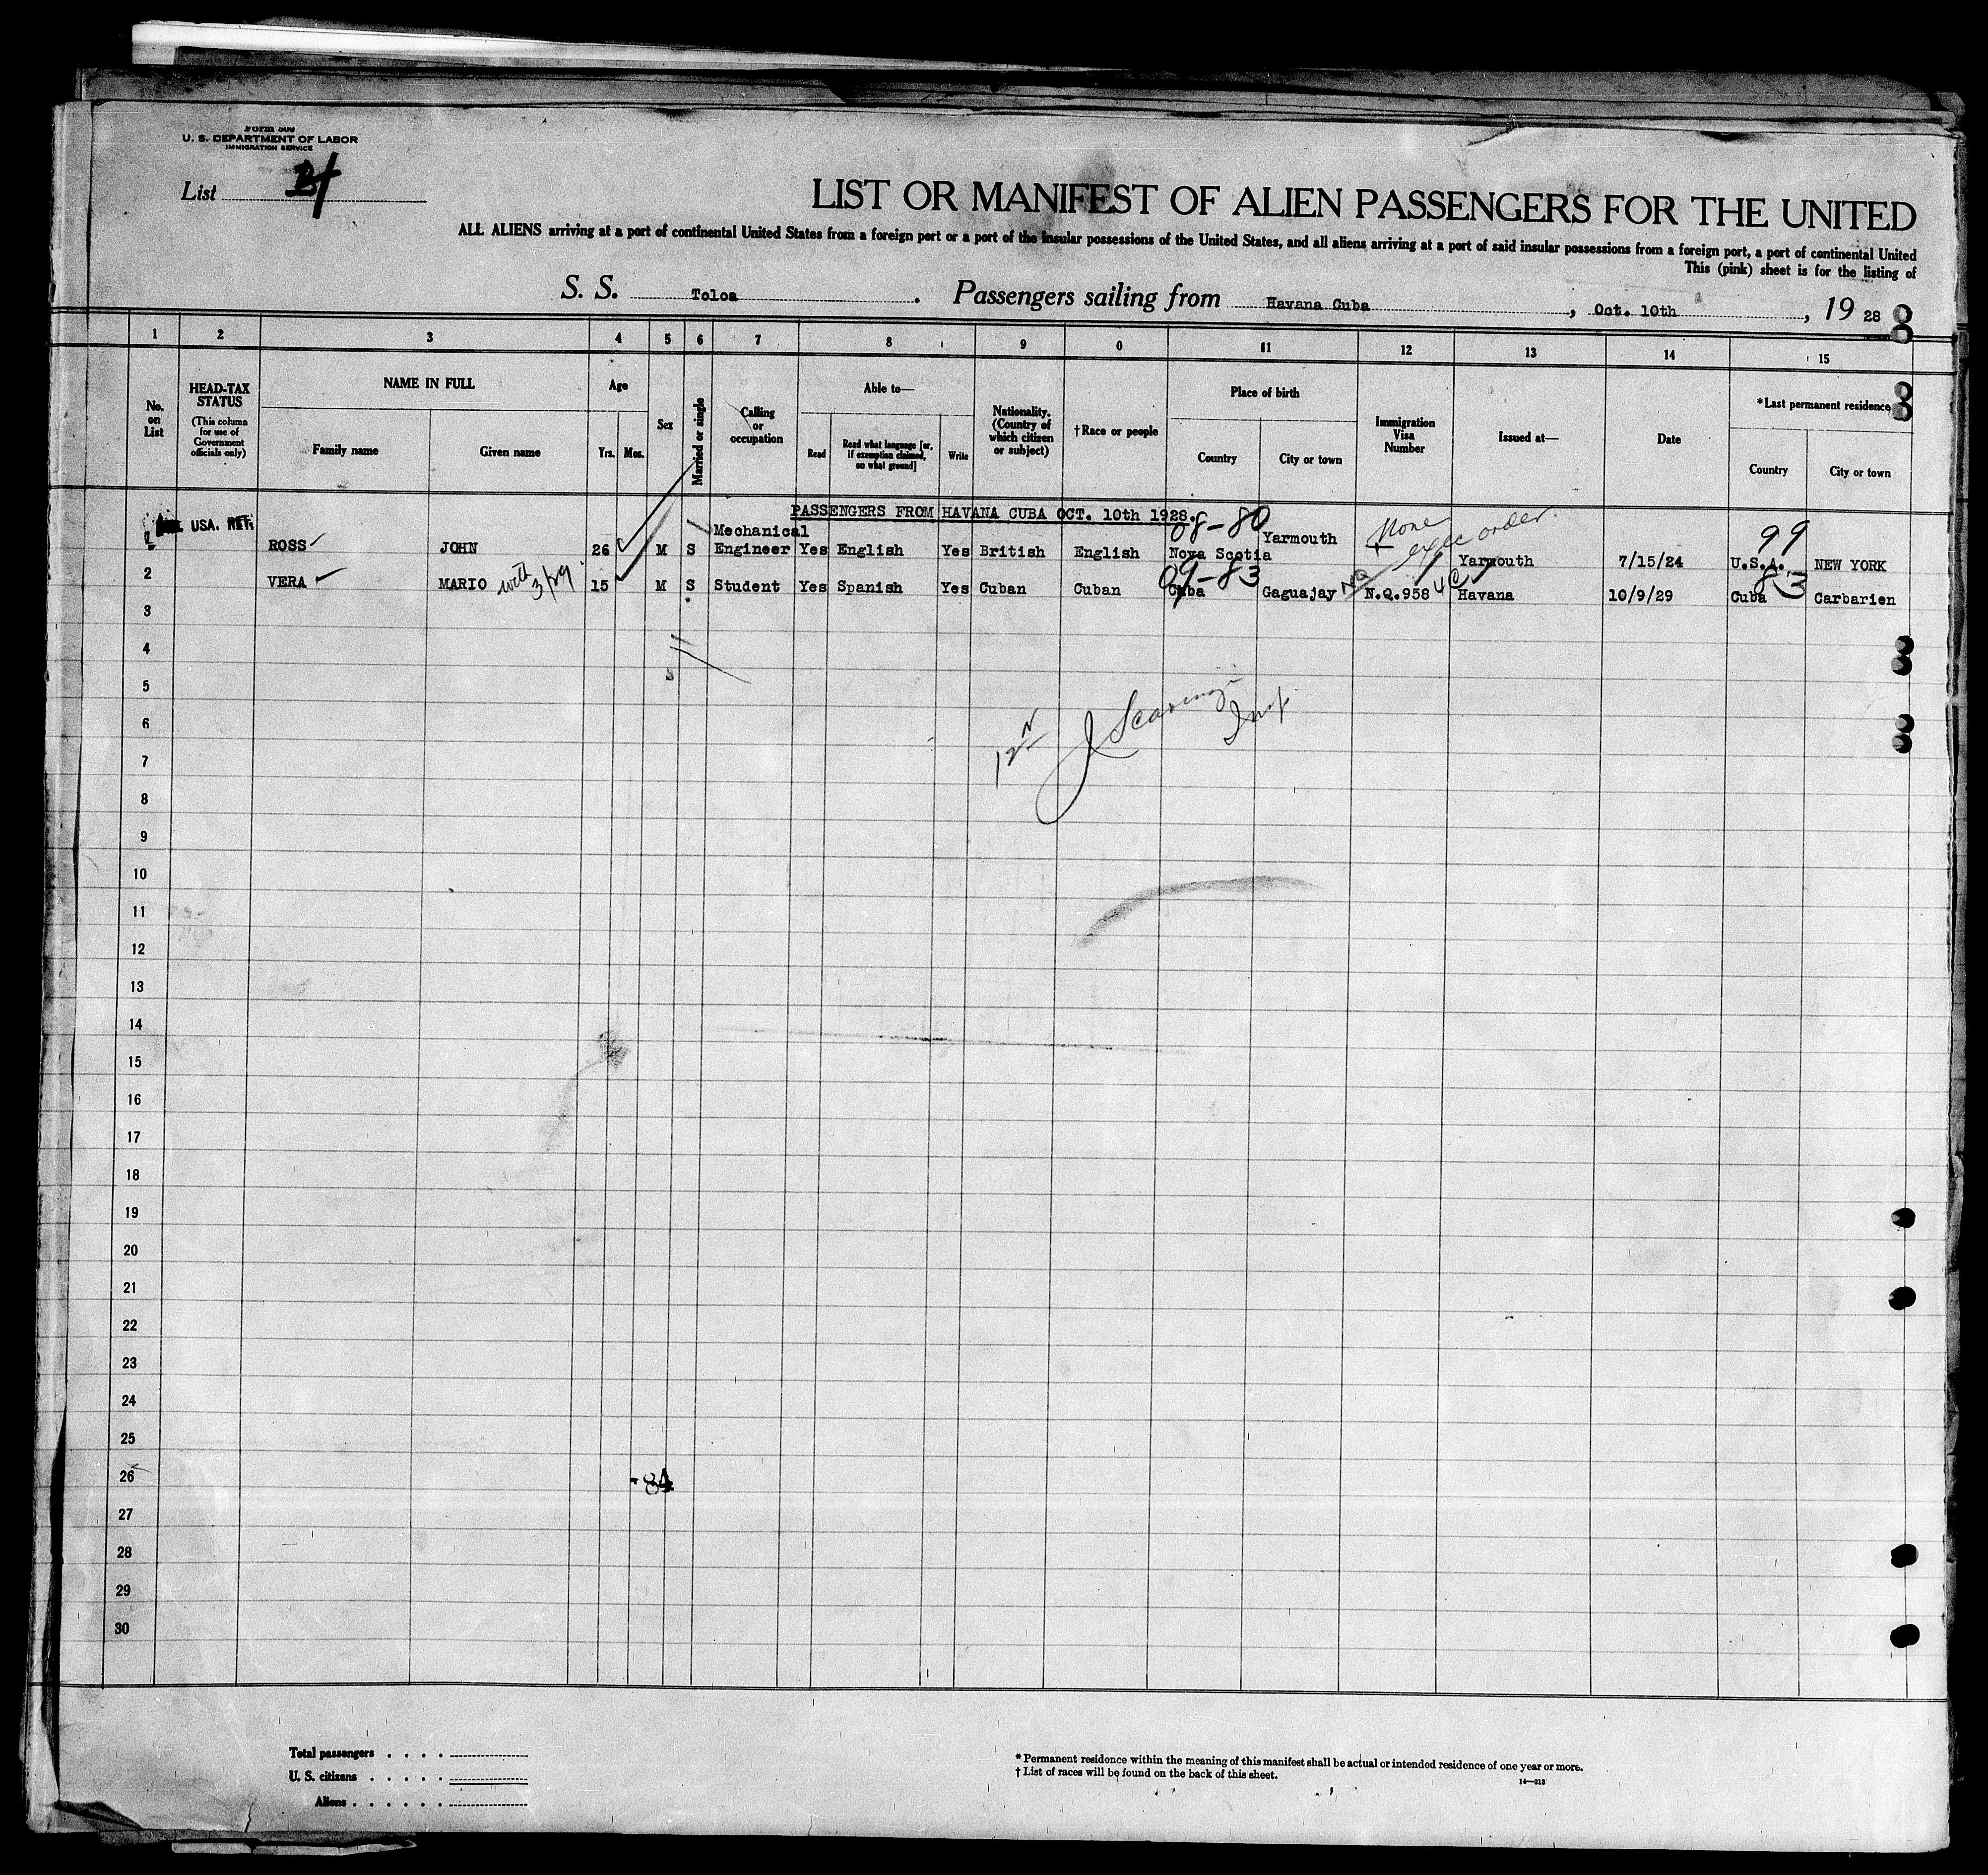 Form 500
U. S. DEPARTMENT OF LABOR
IMMIGRATION SERVICE
List
LIST OR MANIFEST OF ALIEN PASSENGERS FOR THE UNITED
ALL ALIENS arriving at a port of continental United States from a foreign port or a port of the insular possessions of the United States, and all aliens arriving at a port of said insular possessions from a foreign port, a port of continental United
This (pink) sheet is for the listing of
S. S. Toloa. Passengers sailing from Havana Cuba, Oct. 10th, 19 28
1 2 3 4 5 6 7 8 9 0 11 12 13 14 15
No. on List
HEAD-TAX STATUS
(This column for use of Government officials only)
NAME IN FULL
Family name
Given name
Age
Yrs.
Mos.
Sex
Married or single
Calling or occupation
Able to—
Read
Read what language [or, if exemption claimed, on what ground]
Write
Nationality. (Country of which citizen or subject)
†Race or people
Place of birth
Country
City or town
Immigration Visa Number
Issued at—
Date
*Last permanent residence
Country
City or town
PASSENGERS FROM HAVANA CUBA OCT. 10th 1928.
USA. RET. ROSS JOHN 26 M S Mechanical Engineer Yes English Yes British English 08-80 Nova Scotia Yarmouth None exec order. Yarmouth 7/15/24 99 U.S.A. NEW YORK
2 VERA MARIO with 3/29 15 M S Student Yes Spanish Yes Cuban Cuban 09-83 Cuba Gaguajay NQ N.Q.958 4C Havana 10/9/29 83 Cuba Carbarien
3
4
5
6
7
8
9
10
11
12
13
14
15
16
17
18
19
20
21
22
23
24
25
26
-84
27
28
29
30
Total passengers . . . .
U. S. citizens . . . . .
Aliens . . . . . .
*Permanent residence within the meaning of this manifest shall be actual or intended residence of one year or more.
†List of races will be found on the back of this sheet.
14—213